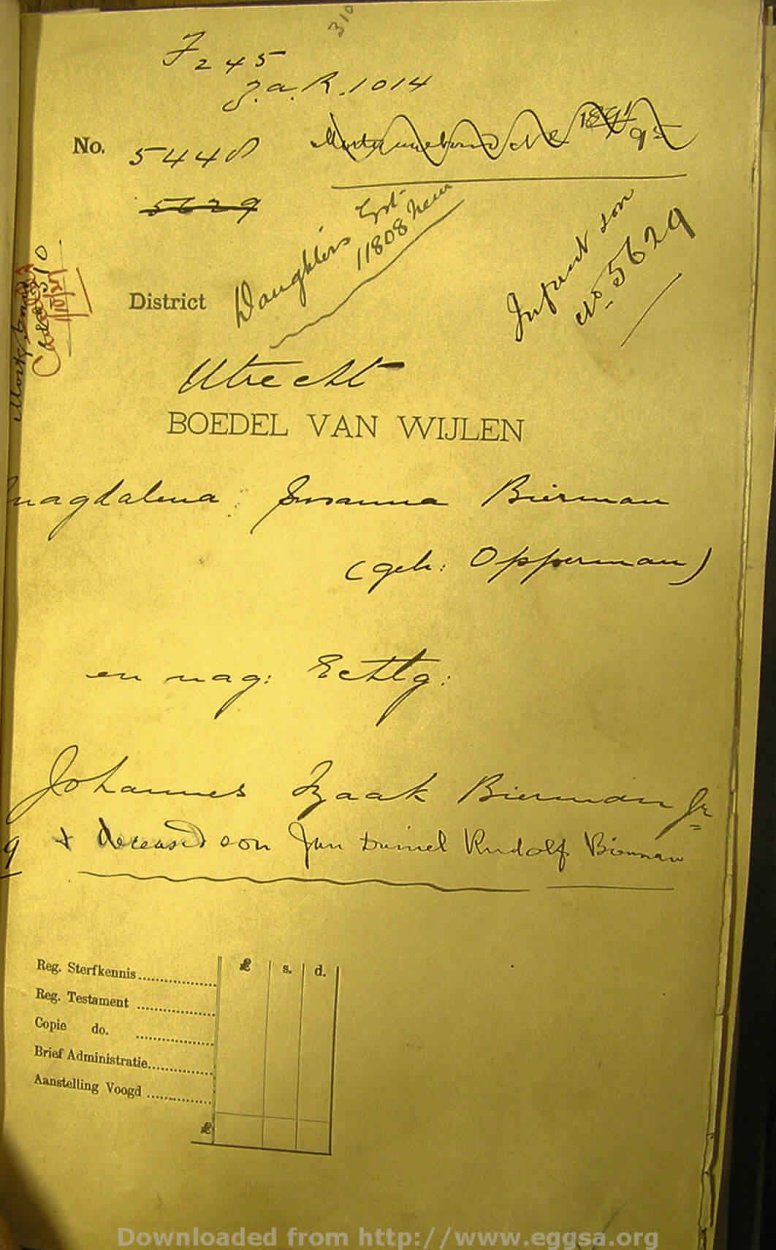 310
F 245
Z.A.R. 1014
No. 5448
5629
Daughters Est.
11808 new
Infant son
No. 5629
District
Utrecht
BOEDEL VAN WIJLEN
Magdalena Susanna Bierman
(geb: Opperman)
en nag: Echtg:
Johannes Izaak Bierman Jr
& deceased son Jan Daniel Rudolf Bierman
£ s. d.
Reg. Sterfkennis
Reg. Testament
Copie do.
Brief Administratie
Aanstelling Voogd
£
Downloaded from http://www.eggsa.org